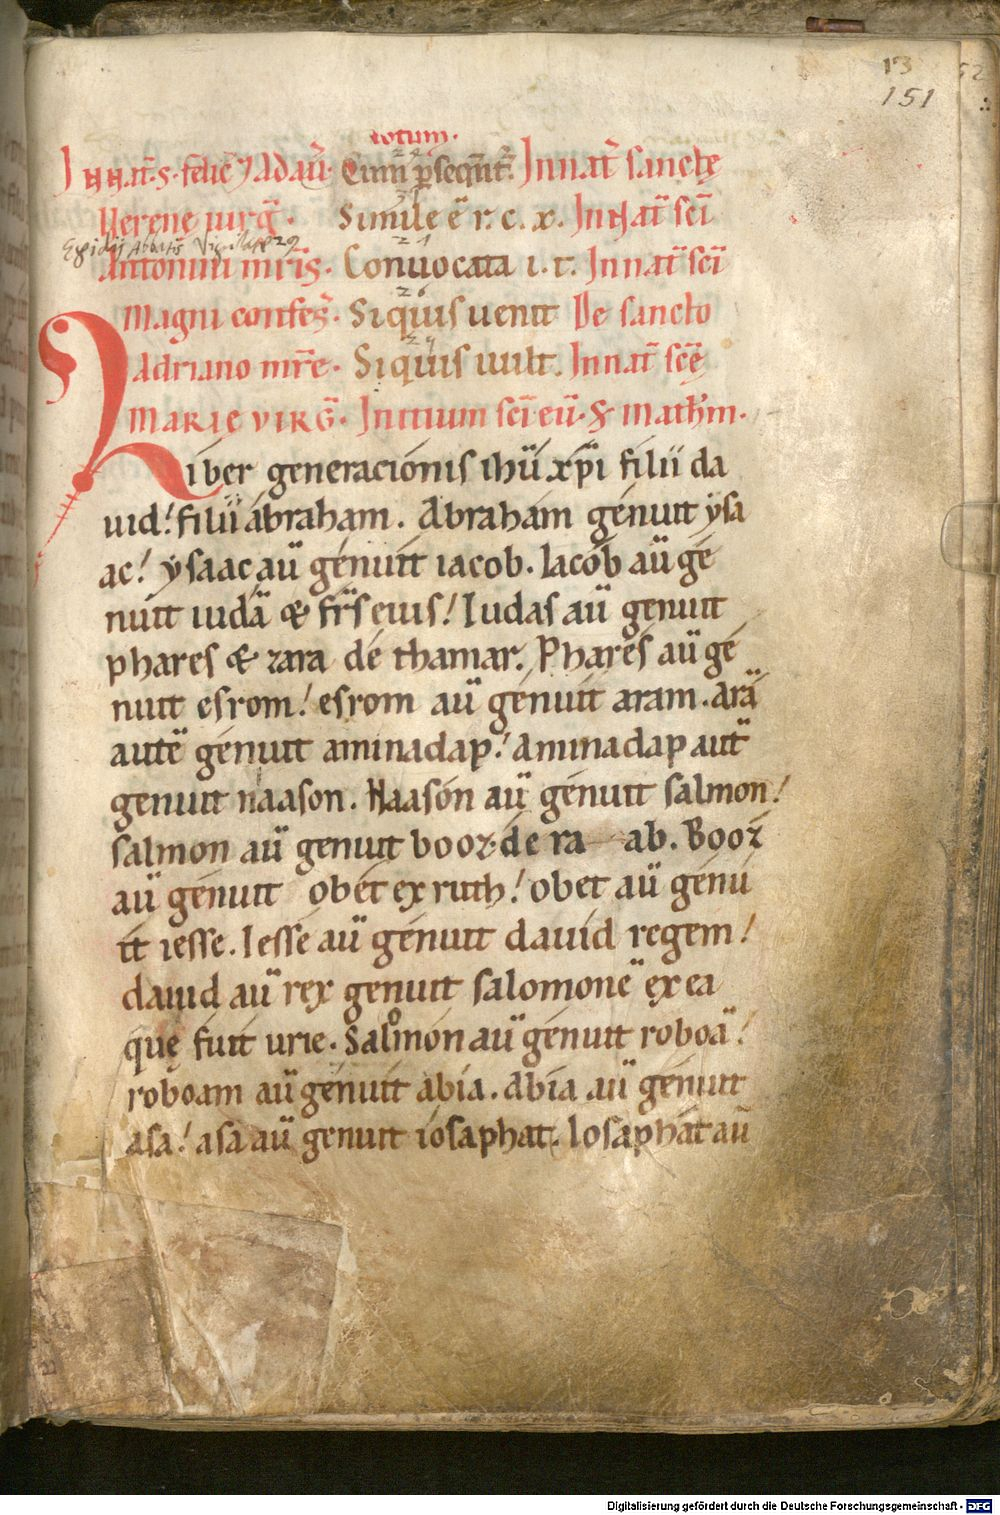 13
151
totum.
Innat̄. s. felic̄ ⁊ Adau᷑. Cum ꝑseqūt᷑. Innat᷑ sanctę
Herenę uirḡ. Simile ē r. c. x. In Nat̄ scī
Egidij Abbatis
Antonini mr̄is. Conuocata i. t. Innat̄ scī
26
Magni confes̄. Siquis uenit De sancto
Adriano mr̄e. Siquis uult. Innat̄ scę̄
MARIĘ VIRḠ. Initium scī eū. S. math̄m.
Liber generacionis ihū xp̄i filii da
uid! filii abraham. Abraham genuit ysa
ac! ysaac aū genuit iacob. Iacob aū ge
nuit iudā & fr̄s eius! Iudas aū genuit
phares & zara de thamar. Phares aū ge
nuit esrom! esrom aū genuit aram. Arā
autē genuit aminadap! Aminadap aut̄
genuit naason. Naason aū genuit salmon!
salmon aū genuit booz. de ra ab. Booz
aū genuit obet ex ruth! obet aū genu
it iesse. Iesse aū genuit dauid regem!
dauid aū rex genuit salomonē ex ea
quę fuit urie. Salomon aū genuit roboā!
roboam aū genuit abia. Abia aū genuit
asa! asa aū genuit iosaphat. Iosaphat aū
Digitalisierung gefördert durch die Deutsche Forschungsgemeinschaft - DFG